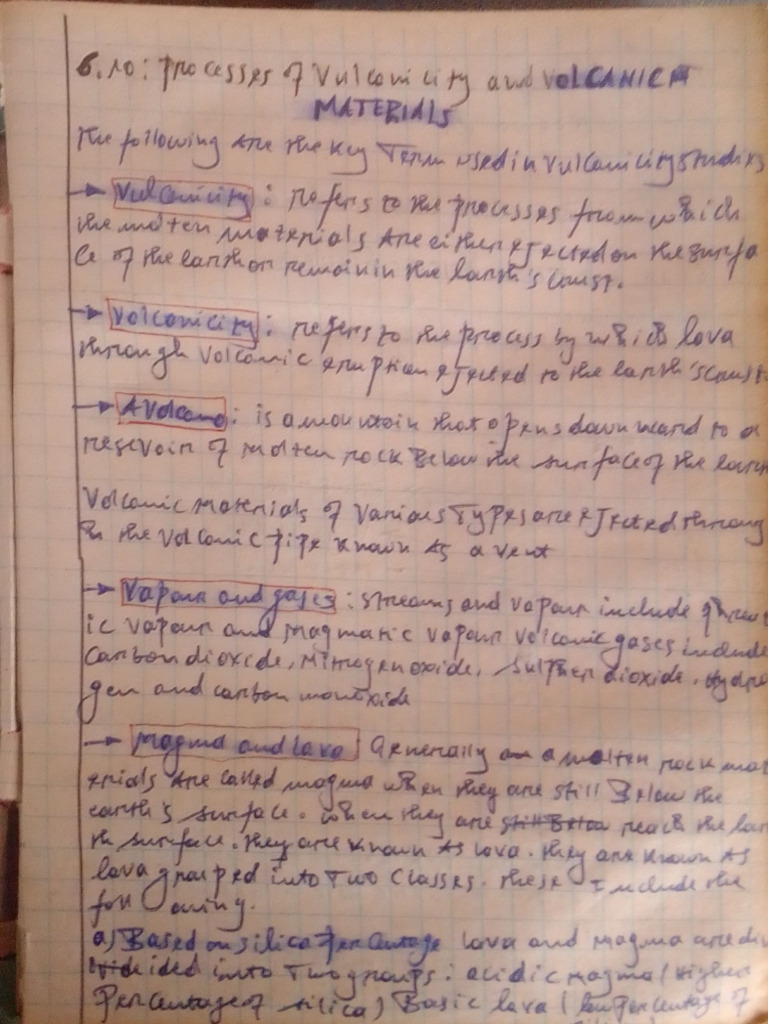 6.10: Processes of Vulcanicity and VOLCANIC
MATERIALS
The following are the key Term used in vulcanicity studies
→ Vulcanicity: refers to the processes from which
the molten materials are either ejected on the surfa
ce of the earth or remain in the earth's crust.
→ Volcanicity: refers to the process by which lava
through volcanic eruption ejected to the earth's crust
→ A Volcano: is a mountain that opens downward to a
reservoir of molten rock Below the surface of the earth
Volcanic materials of various Types are ejected throug
h the volcanic pipe known as a vent
→ Vapour and gases: streams and vapour include phreat
ic vapour and magmatic vapour volcanic gases include
Carbon dioxide, Nitrogen oxide, sulpher dioxide, Hydro
gen and carbon monoxide
→ Magma and lava: Generally a molten rock mat
erials are called magma when they are still Below the
earth's surface. when they are still Below reach the ear
th surface. they are known as lava. they are known as
lava grouped into Two Classes. these Include the
foll owing.
a) Based on silica Percentage lava and magma are di
vided into Two groups: acidic magma (Higher
Percentage of silica) Basic lava (low Percentage of